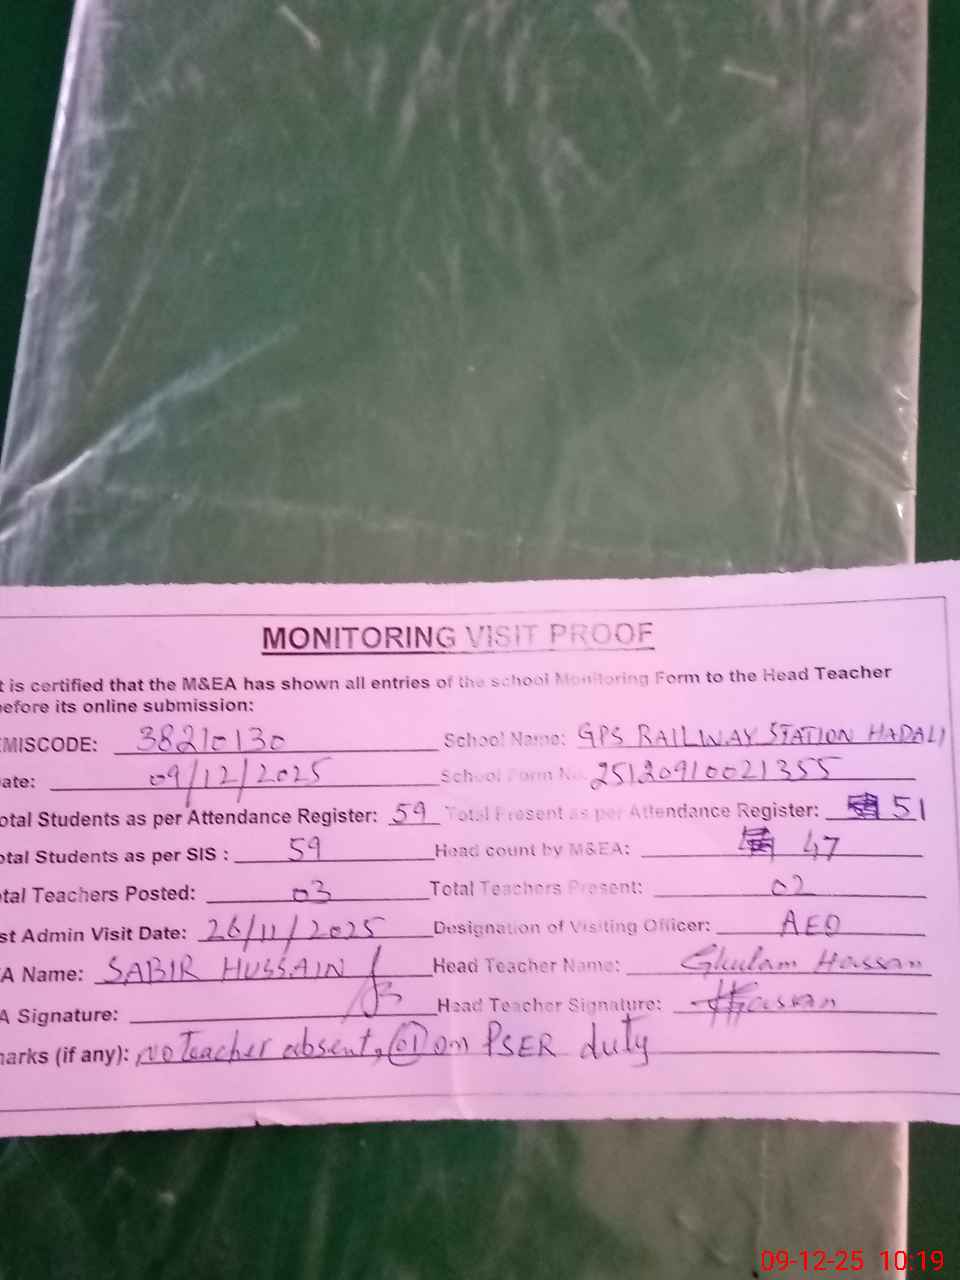 MONITORING VISIT PROOF
t is certified that the M&EA has shown all entries of the school Monitoring Form to the Head Teacher
efore its online submission:
EMISCODE: 38210130 School Name: GPS RAILWAY STATION HADALI
ate: 09/12/2025 School Form No. 25120910021355
otal Students as per Attendance Register: 59 Total Present as per Attendance Register: 51
otal Students as per SIS : 59 Head count by M&EA: 47
tal Teachers Posted: 03 Total Teachers Present: 02
st Admin Visit Date: 26/11/2025 Designation of Visiting Officer: AEO
A Name: SABIR HUSSAIN Head Teacher Name: Ghulam Hassan
A Signature: Head Teacher Signature: Hassan
arks (if any): no Teacher absent, 01 on PSER duty
09-12-25 10:19